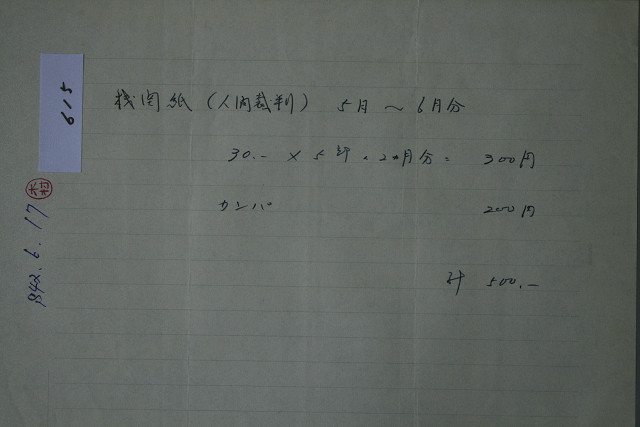 615
機関紙(人間裁判) 5月〜6月分
30.- × 5部 × 2ヶ月分 = 300円
カンパ 200円
計 500.-
木村
S42.6.17